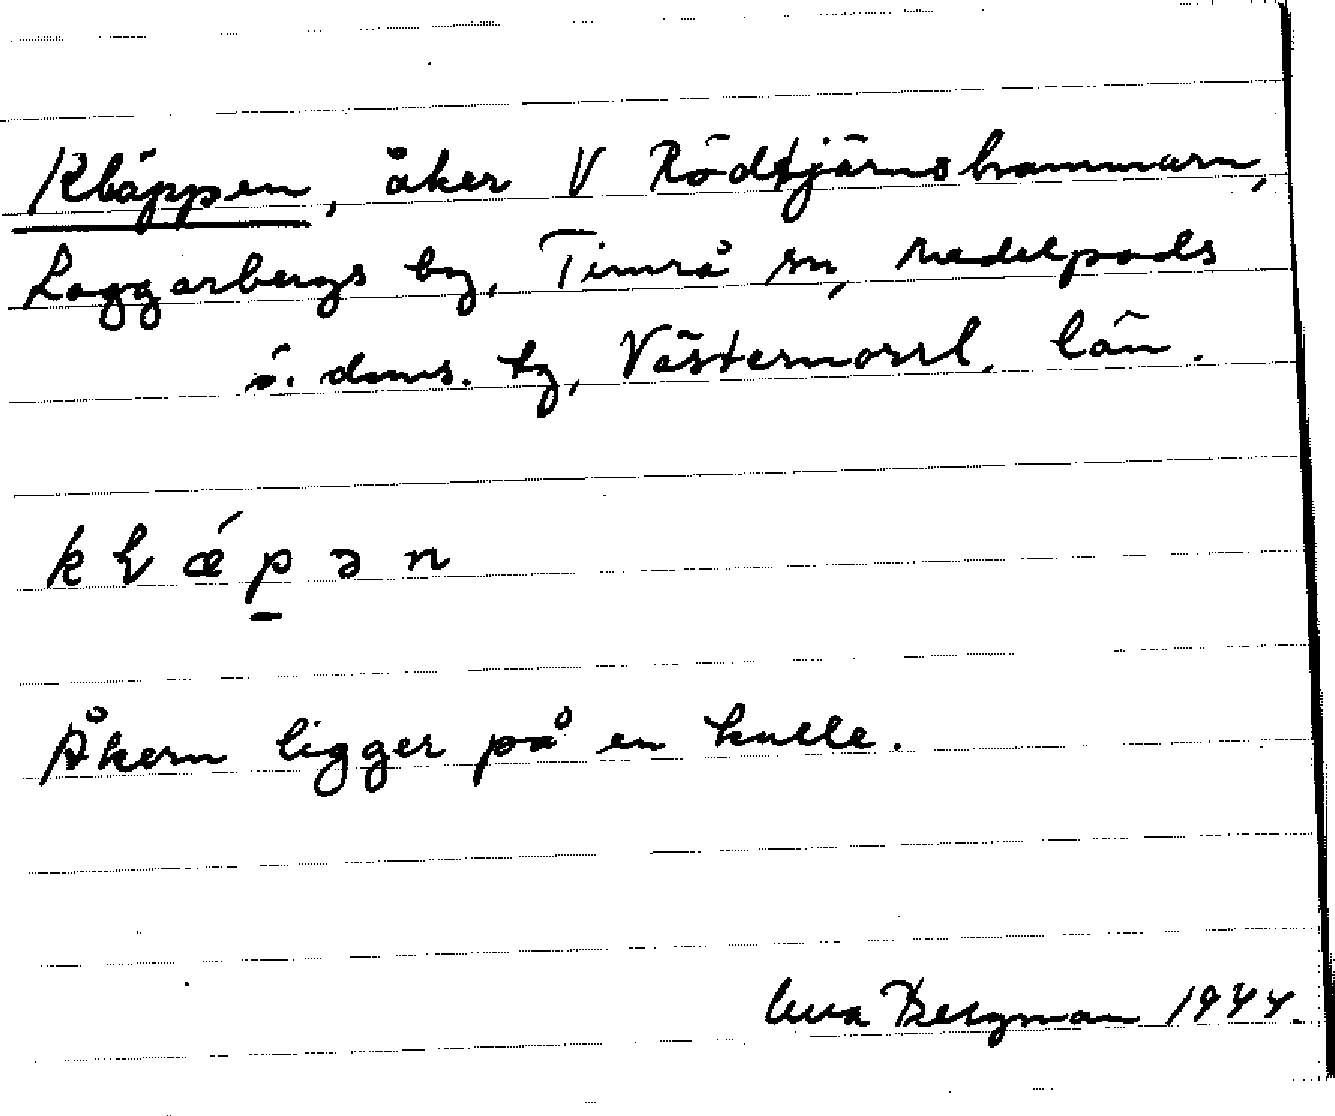 Kläppen, åker V Rödtjärnshammarn,
Laggarbergs by, Timrå sn, Medelpads
ö. doms. tg, Västernorrl. län.
k ɫ ǽ p̱ ə n
Åkern ligger på en kulle.
Bergman 1944.